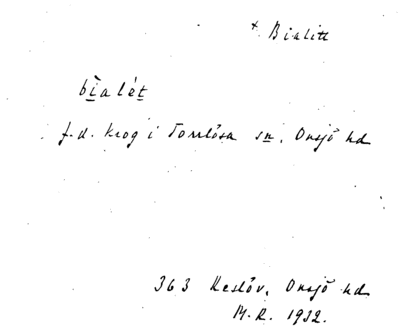 * Bialitt
bialét
f.d. krog i Torrlösa sn, Onsjö hd
363 Keslöv, Onsjö hd
M.R. 1932.